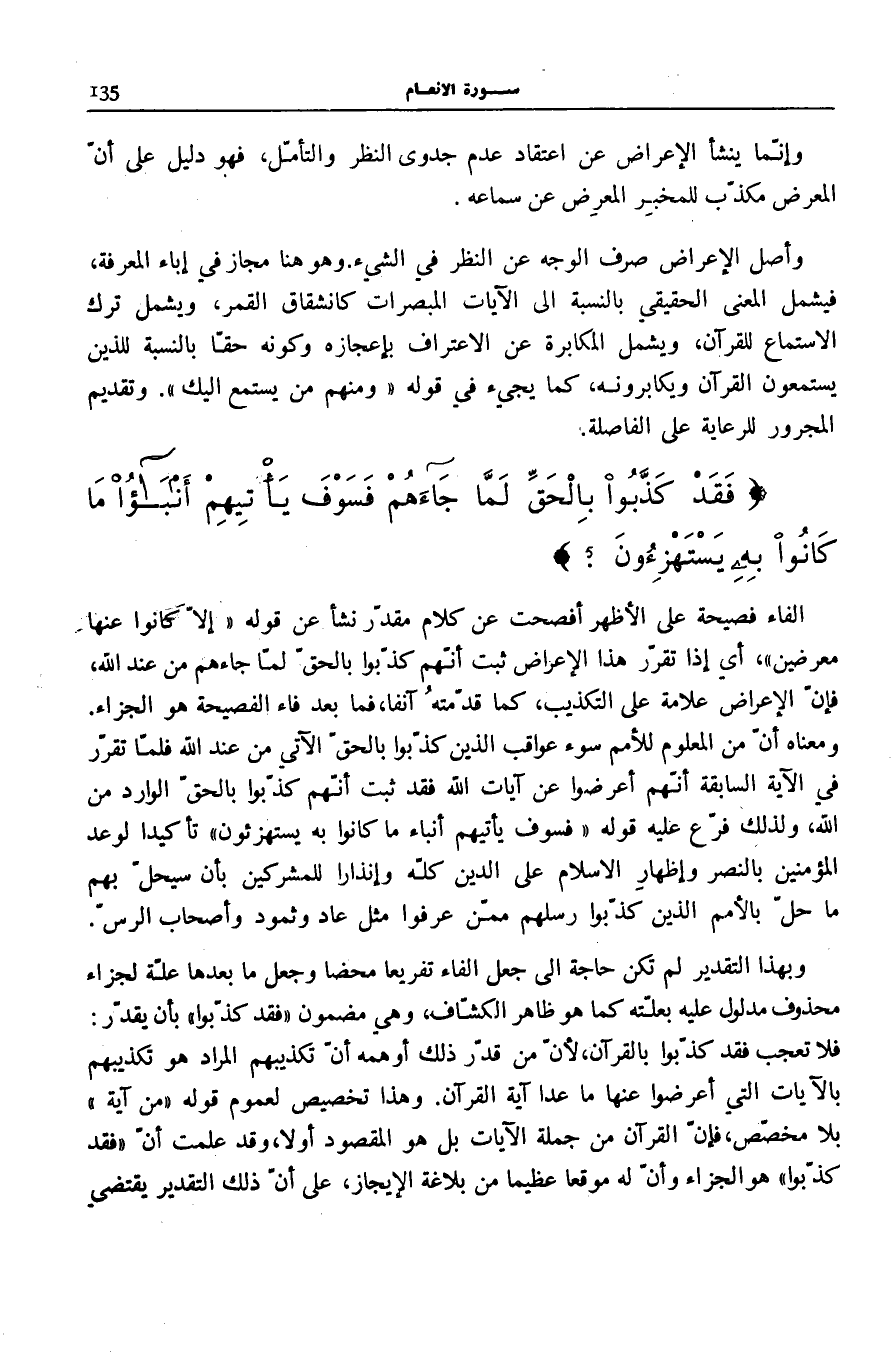 سورة الانعام 135
وإنّما ينشأ الإعراض عن اعتقاد عدم جدوى النظر والتأمّل، فهو دليل على أنّ
المعرض مكذّب للمخبِر المعرِض عن سماعه .
وأصل الإعراض صرف الوجه عن النظر في الشيء.وهو هنا مجاز في إباء المعرفة،
فيشمل المعنى الحقيقي بالنسبة الى الآيات المبصرات كانشقاق القمر، ويشمل ترك
الاستماع للقرآن، ويشمل المكابرة عن الاعتراف بإعجازه وكونه حقّا بالنسبة للذين
يستمعون القرآن ويكابرونه، كما يجيء في قوله « ومنهم من يستمع اليك ». وتقديم
المجرور للرعاية على الفاصلة.
﴿ فَقَدْ كَذَّبُواْ بِالْحَقِّ لَمَّا جَآءَهُمْ فَسَوْفَ يَأْتِيهِمْ أَنْبَـٰٓؤُاْ مَا
كَانُواْ بِهِۦ يَسْتَهْزِءُونَ ؟ ﴾
الفاء فصيحة على الأظهر أفصحت عن كلام مقدّر نشأ عن قوله « إلاّ كانوا عنها
معرضين»، أي إذا تقرّر هذا الإعراض ثبت أنّهم كذّبوا بالحقّ لمّا جاءهم من عند الله،
فإنّ الإعراض علامة على التكذيب، كما قدّمتهُ آنفا،فما بعد فاء الفصيحة هو الجزاء.
ومعناه أنّ من المعلوم للأمم سوء عواقب الذين كذّبوا بالحقّ الآتي من عند الله فلمّا تقرّر
في الآية السابقة أنّهم أعرضوا عن آيات الله فقد ثبت أنّهم كذّبوا بالحقّ الوارد من
الله، ولذلك فرّع عليه قوله « فسوف يأتيهم أنباء ما كانوا به يستهزئون» تأكيدا لوعد
المؤمنين بالنصر وإظهارِ الاسلام على الدين كلّه وإنذارا للمشركين بأن سيحلّ بهم
ما حلّ بالأمم الذين كذّبوا رسلهم ممّن عرفوا مثل عاد وثمود وأصحاب الرسّ.
وبهذا التقدير لم تكن حاجة الى جعل الفاء تفريعا محضا وجعل ما بعدها علّة لجزاء
محذوف مدلول عليه بعلّته كما هو ظاهر الكشّاف، وهي مضمون «فقد كذّبوا» بأن يقدّر :
فلا تعجب فقد كذّبوا بالقرآن،لأنّ من قدّر ذلك أوهمه أنّ تكذيبهم المراد هو تكذيبهم
بالآيات التي أعرضوا عنها ما عدا آية القرآن. وهذا تخصيص لعموم قوله «من آية »
بلا مخصّص،فإنّ القرآن من جملة الآيات بل هو المقصود أولا،وقد علمت أنّ «فقد
كذّبوا» هو الجزاء وأنّ له موقعا عظيما من بلاغة الإيجاز، على أنّ ذلك التقدير يقتضي